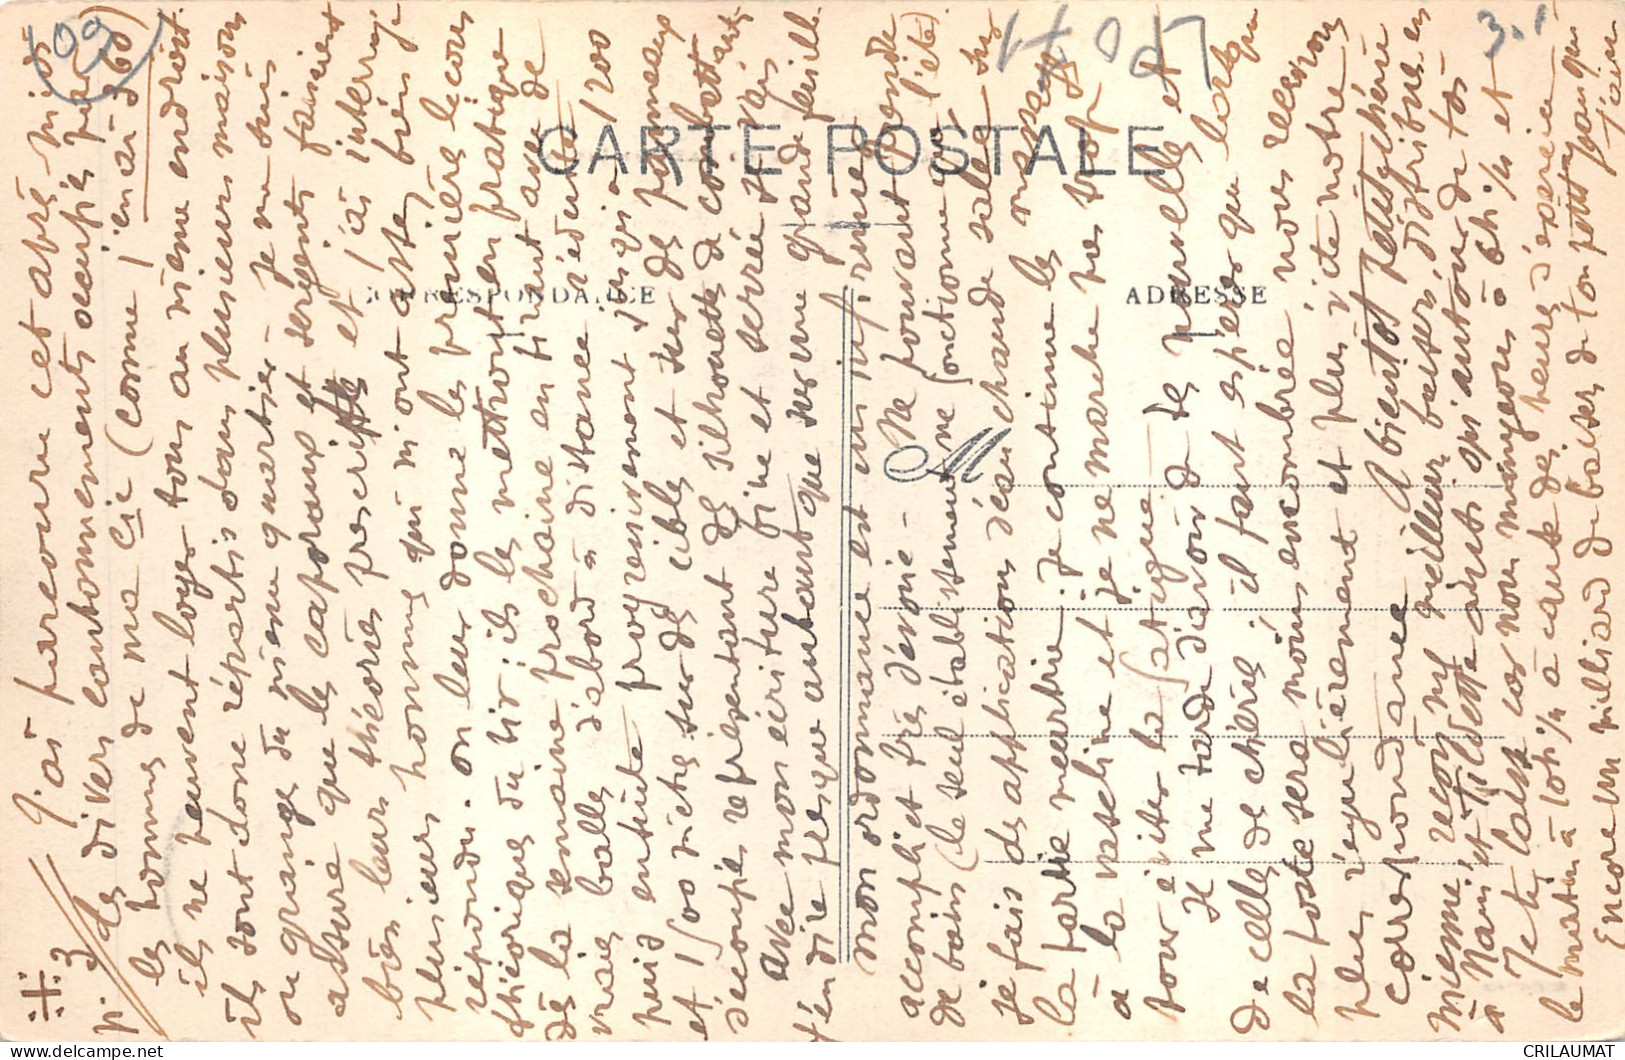 CARTE POSTALE
CORRESPONDANCE
ADRESSE
M
3
J'ai parcouru cet après midi
p. les divers cantonnements occupés par
les hommes de ma Cie (comme j'en ai 260)
ils ne peuvent loger tous au même endroit
ils sont donc répartis dans plusieurs maisons
ou granges du même quartier - je me suis
assuré que les caporaux et sergents faisaient
bien leurs théories prescrites et j'ai interrogé
plusieurs hommes qui m'ont assez bien
répondu. on leur donne les premières leçons
théoriques du tir, ils les mettront en pratique
dès la semaine prochaine en tirant avec de
vraies balles d'abord à distance réduite
puis ensuite progressivement jusqu'à 1200
et 1500 mètres sur des cibles et sur des panneaux
découpés représentant des silhouettes de combattants
Avec mon écriture fine et serrée je vais
t'en dire presque autant que sur une grande feuille
mon ordonnance est un
accompli et très dévoué - Ne pouvant prendre
de bains (le seul établissement ne fonctionne que l'été)
je fais des applications d'eau chaude salée sur
la partie meurtrie. Je continue les massages
à la vaseline et je ne marche pas trop
pour éviter la fatigue
Il me tarde d'avoir de tes nouvelles et
de celles des chéries, il faut espérer que lorsque
la poste sera moins encombrée nous recevrons
plus régulièrement et plus vite notre
correspondance A bientôt Petite chérie
mienne, reçois mes meilleurs baisers, distribues en
à Nani et Tildette ainsi qu'autour de toi
Je te laisse car nous mangeons à 6h ¼ et
le matin à 10h ½ à cause des heures d'exercice
Encore un milliard de baisers de ton petit
j'aime